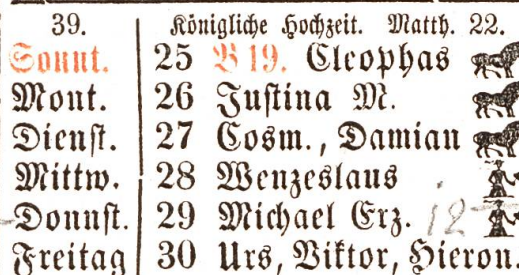 39. Königliche Hochzeit. Matth. 22.
Sonnt. 25 B 19. Cleophas
Mont. 26 Justina M.
Dienst. 27 Cosm., Damian
Mittw. 28 Wenzeslaus
Donnst. 29 Michael Erz. 12
Freitag 30 Urs, Viktor, Hieron.